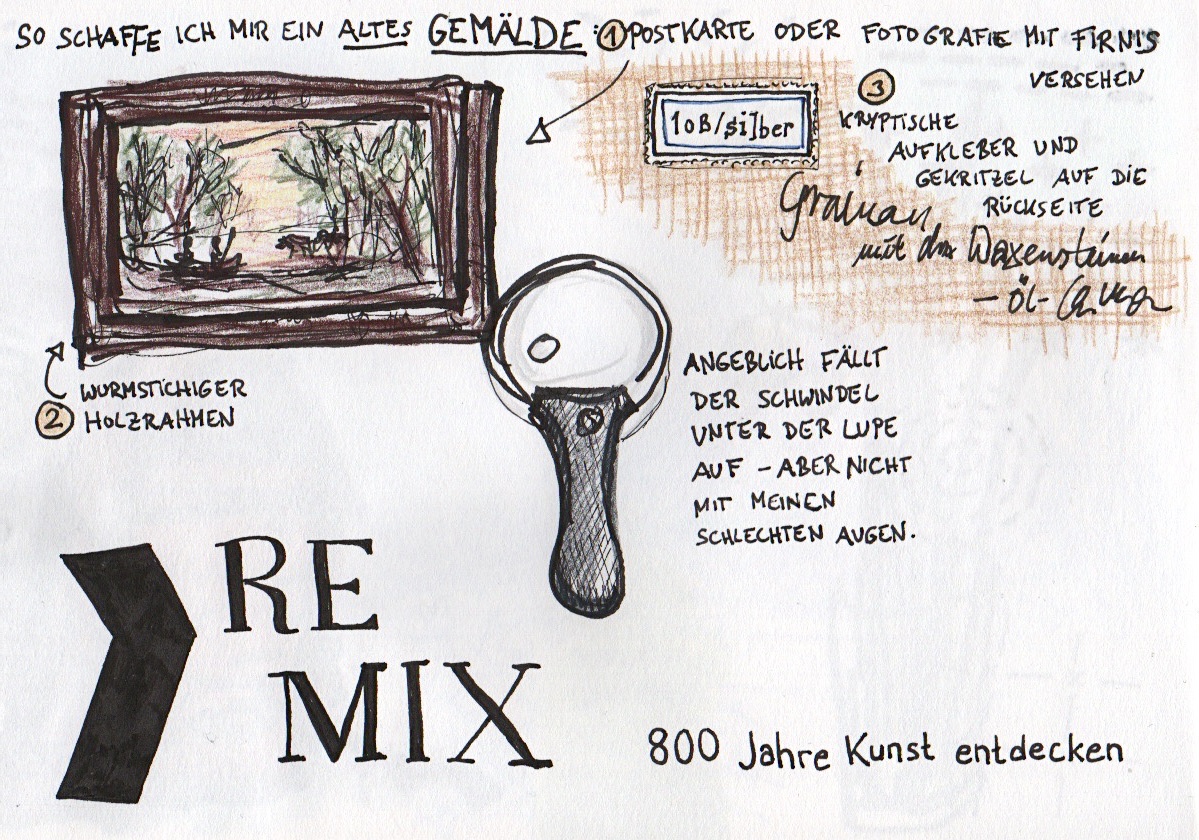 SO SCHAFFE ICH MIR EIN ALTES GEMÄLDE : 1 POSTKARTE ODER FOTOGRAFIE MIT FIRNIS
VERSEHEN
3
KRYPTISCHE
AUFKLEBER UND
GEKRITZEL AUF DIE
RÜCKSEITE
1oB/$i]ber
mit den Waxensteinen
- öl-
2 WURMSTICHIGER
HOLZRAHMEN
ANGEBLICH FÄLLT
DER SCHWINDEL
UNTER DER LUPE
AUF - ABER NICHT
MIT MEINEN
SCHLECHTEN AUGEN.
RE
MIX
800 Jahre Kunst entdecken